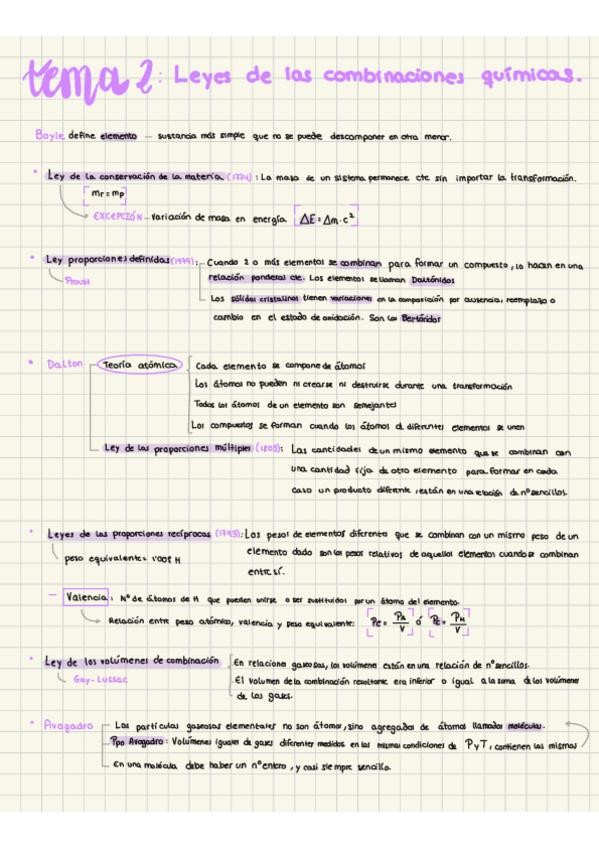 tema 2: Leyes de las combinaciones químicas.
Boyle define elemento — sustancia más simple que no se puede descomponer en otra menor.
• Ley de la conservación de la materia (1774): La masa de un sistema permanece cte sin importar la transformación.
mr = mp
EXCEPCIÓN — variación de masa en energía ΔE = Δm·c²
• Ley proporciones definidas (1799): Cuando 2 o más elementos se combinan para formar un compuesto, lo hacen en una
Proust relación ponderal cte. Los elementos se llaman Daltónidos
Los sólidos cristalinos tienen variaciones en la composición por ausencia, reemplazo o
cambio en el estado de oxidación. Son los Bertóridos
• Dalton Teoría atómica Cada elemento se compone de átomos
Los átomos no pueden ni crearse ni destruirse durante una transformación
Todos los átomos de un elemento son semejantes
Los compuestos se forman cuando los átomos d diferentes elementos se unen
Ley de las proporciones múltiples (1803): Las cantidades de un mismo elemento que se combinan con
una cantidad fija de otro elemento para formar en cada
caso un producto diferente, están en una relación de nº sencillos.
• Leyes de las proporciones recíprocas (1793): Los pesos de elementos diferentes que se combinan con un mismo peso de un
peso equivalente = 1'008 H elemento dado son los pesos relativos de aquellos elementos cuando se combinan
entre sí.
— Valencia: Nº de átomos de H que pueden unirse o ser sustituidos por un átomo del elemento.
Relación entre peso atómico, valencia y peso equivalente: Pe = PA/V ó Pe = PM/V
• Ley de los volúmenes de combinación En relaciones gaseosas, los volúmenes están en una relación de nº sencillos.
Gay-Lussac El volumen de la combinación resultante era inferior o igual a la suma de los volúmenes
de los gases.
• Avogadro Las partículas gaseosas elementales no son átomos, sino agregados de átomos llamados moléculas.
Ppo Avogadro: Volúmenes iguales de gases diferentes medidos en las mismas condiciones de P y T, contienen las mismas
En una molécula debe haber un nº entero, y casi siempre sencillo.